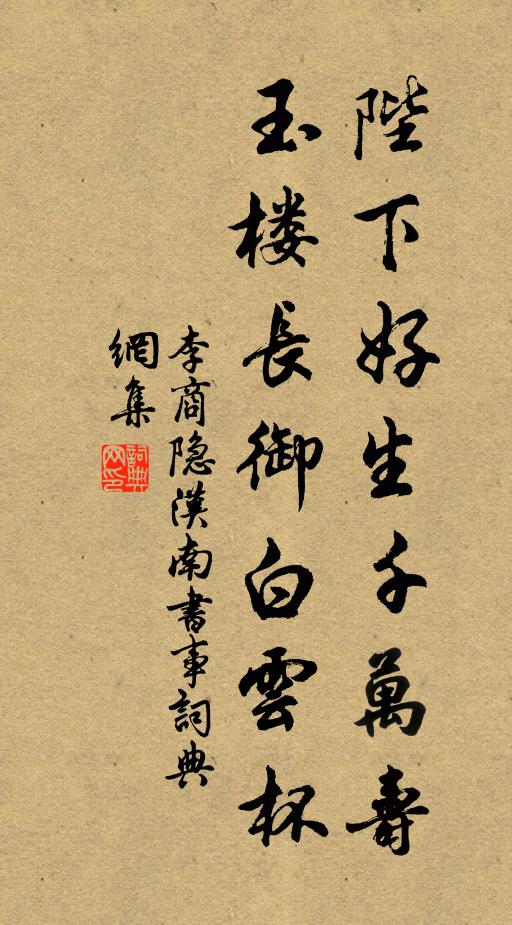 陛下好生千萬壽
玉楼長御白雲杯
李商隐漢南書事詞典
網集
詞典
网印